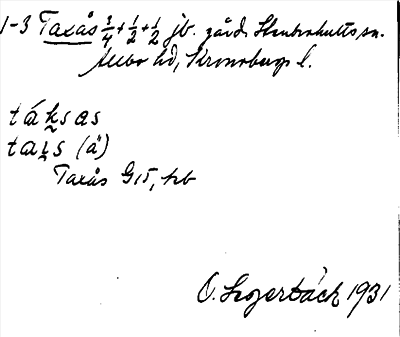 1-3 Taxås 3/4 + 1/2 + 1/2 jb. gård. Stenbrohults sn.
Allbo hd, Kronobergs l.
táksas
tais (ä)
Taxås G15, hb
O. 1931